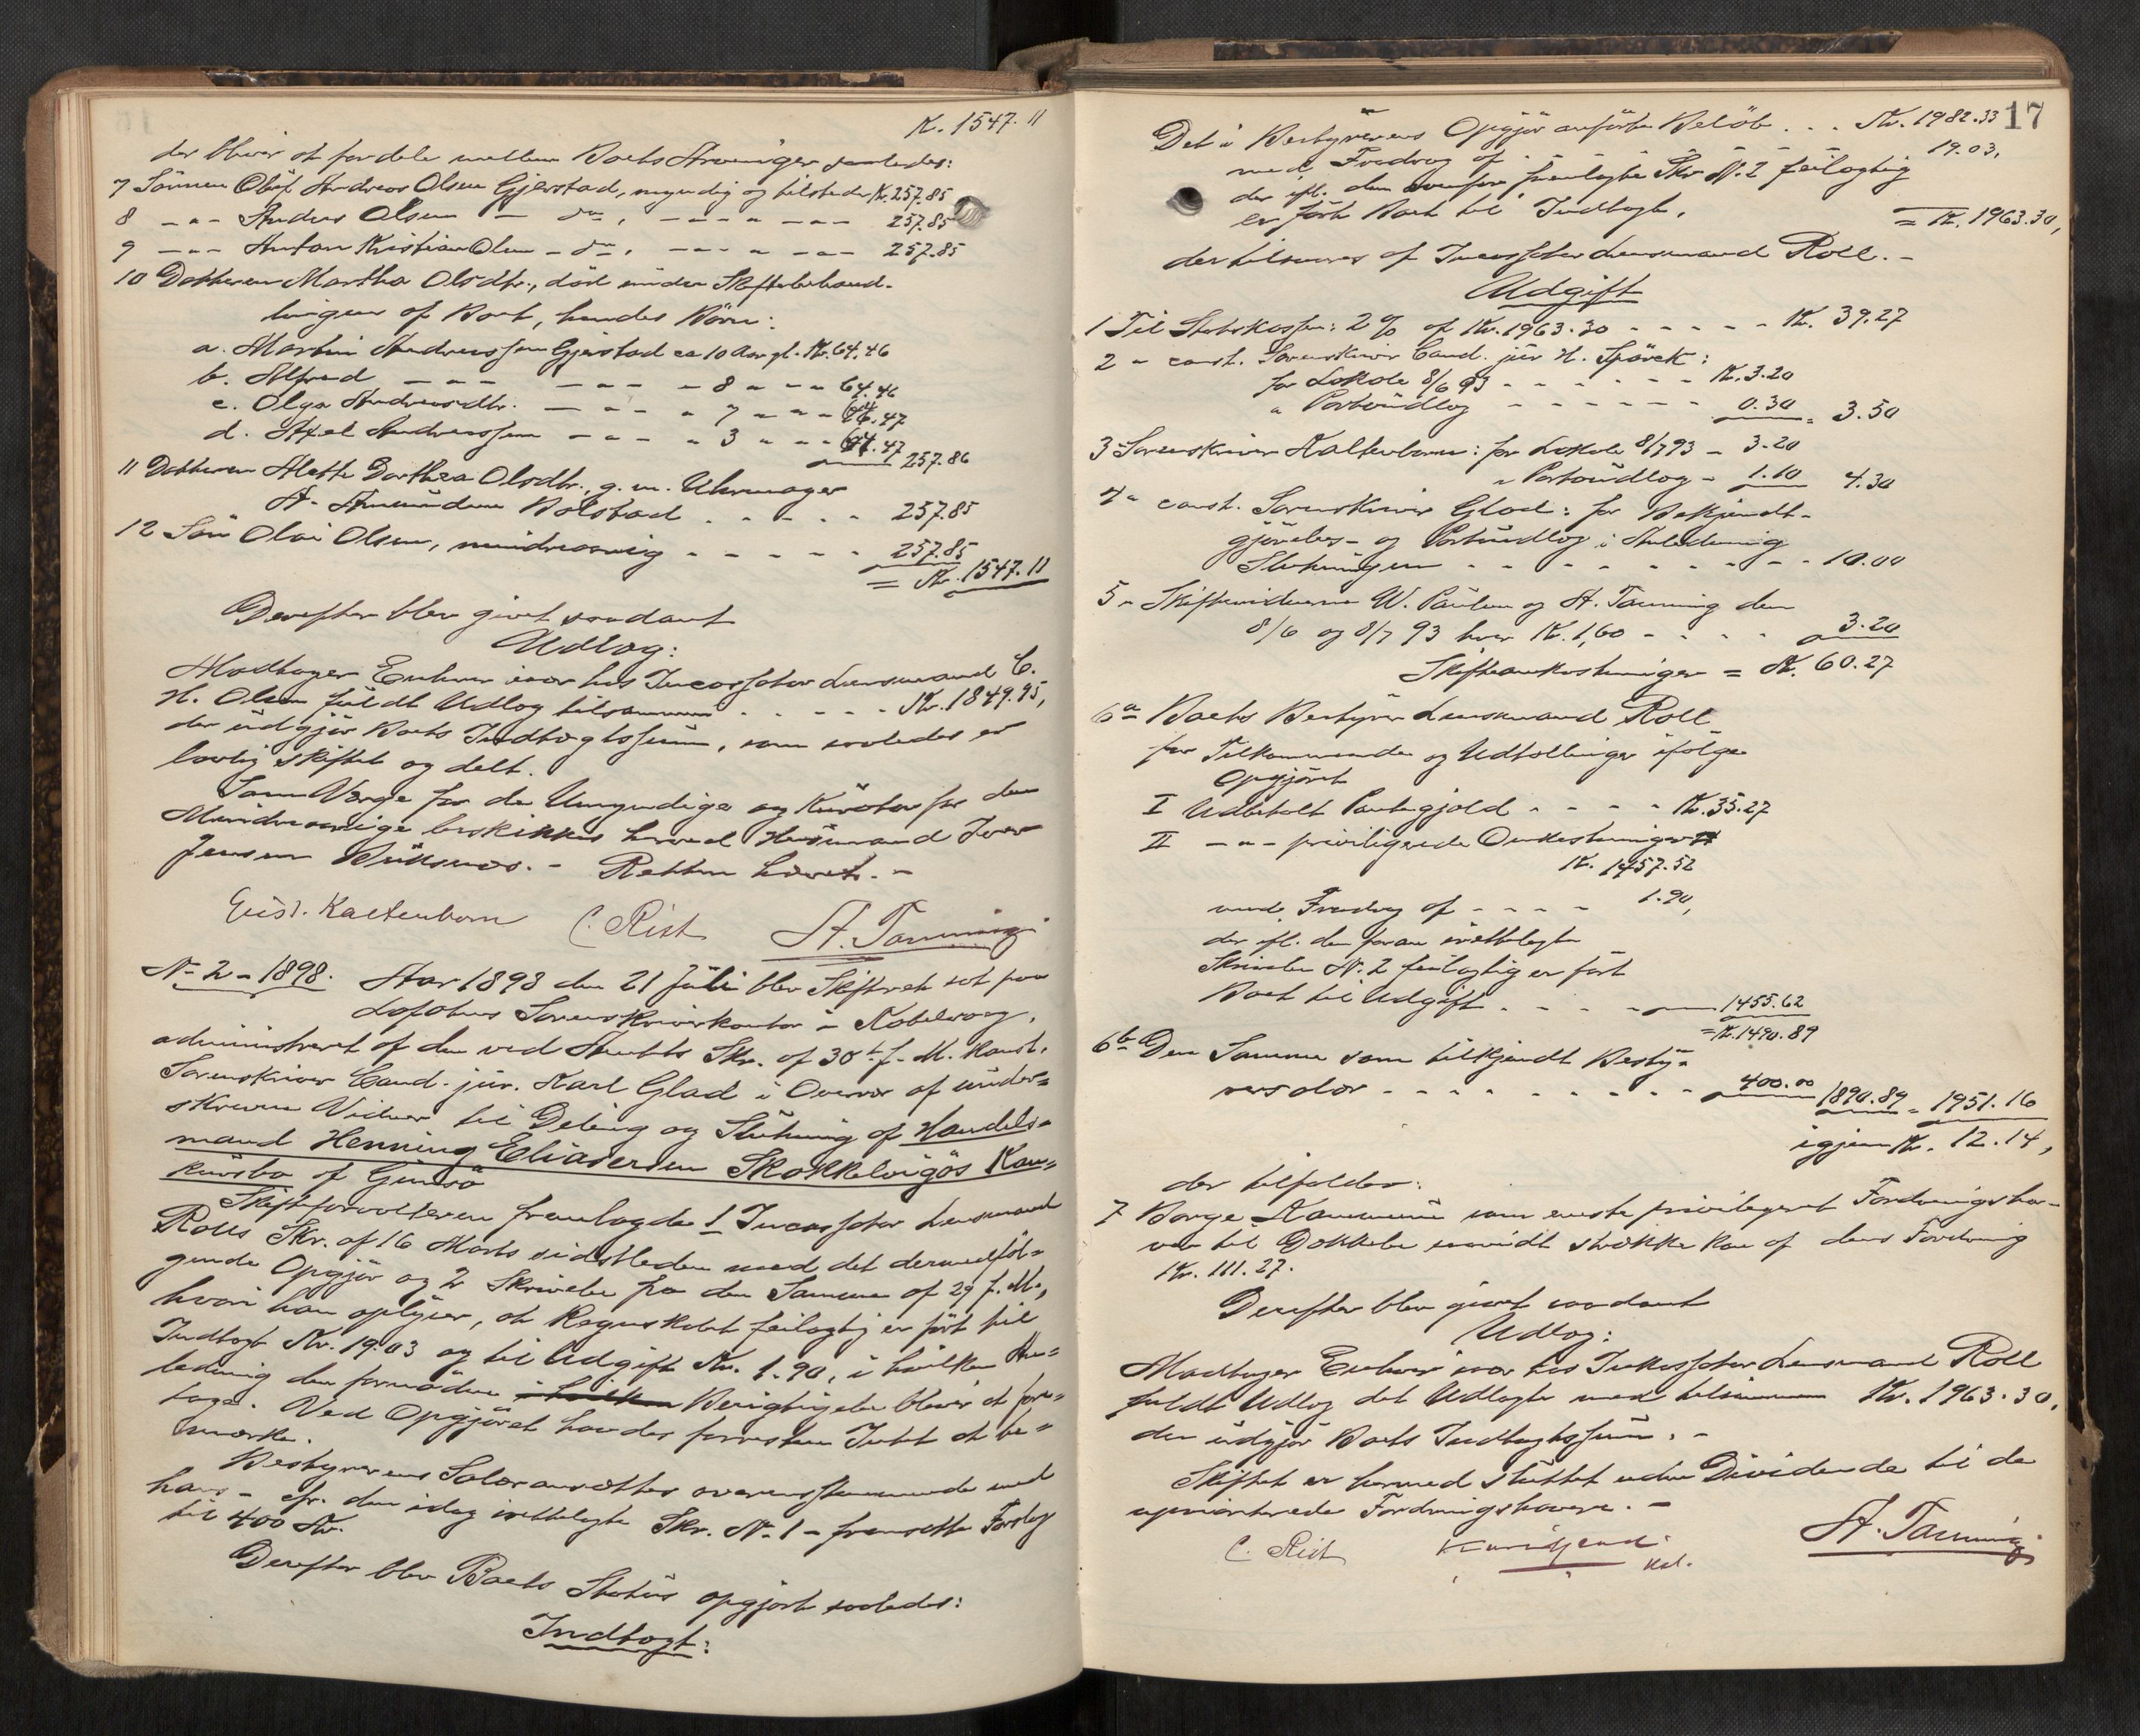 K. 1547.11
der bliver at fordele mellem Boets Arvinger saaledes:
7 Sønnen Oluf Andreas Olsen Gjerstad, myndig og tilstede, Kr. 257.85
8 -"- Anders Olsen - do, - - - " - " - 257.85
9 - - - Anton Kristian Olsen - do, - - - " - " - 257.85
10 Datteren Martha Olsdtr., död under Skiftebehand-
lingen af Boet, hendes Börn:
a. Martin Andreassen Gjerstad ca 10 Aar gl. Kr. 64.46
b. Alfred - " - - " - - 8 " - " 64.46
c. Olga Andreasdtr. - " - " 7 - " - 64.47
d. Axel Andreassen - " - " 3 " - " 64.47 257.86
11 Datteren Mette Dorthea Olsdtr., g. m. Uhrmager
A. Amundsen Bolstad . . . . . 257.85
12 Sön Olai Olsen, mindreaarig - - - - - 257.85
= Kr. 1547.11
Derefter blev givet saadant
Udlæg:
Modtager Enhver især hos Incassator Lensmand C.
H. Olsen fuldt Udlæg tilsammen . . . . . Kr. 1849.95,
der udgjör Boets Indtægtssum, som saaledes er
lovlig skiftet og delt.
Som Værge for de Umyndige og Kurator for den
Mindreaarige beskikkes herved Husmand Iver
Jensen Buksnæs. - Retten hævet. -
Gust. Kaltenborn C. Rist A. Tanning
No 2 - 1898. Aar 1898 den 21 Juli blev Skifteret sat paa
Lofotens Sorenskriverkontor i Kabelvaag,
administreret af den ved Amtets Skr. af 30te f. M. konst.
Sorenskriver Cand. jur. Karl Glad i Overvær af under=
skrevne Vidner til Deling og Slutning af Handels=
mand Henning Eliasersen Skokkelvigös Kon=
kursbo af Gimsö
Skifteforvalteren fremlagde 1 Incassator Lensmand
Rolls Skr. af 16 Marts sidstleden med det dermed föl=
gende Opgjör og 2 Skrivelse fra den Samme af 29 f. M.,
hvori han oplyser, at Regnskabet feilagtig er fört til
Indtægt Kr. 19.03 og til Udgift Kr. 1.90, i hvilken An=
ledning den fornödne Berigtigelse bliver at fore=
tage. Ved Opgjöret havdes forresten Intet at be=
mærke.
Bestyrerens Salær ansættes overensstemmende med
hans - cfr. den idag irettelagte Skr. No 1 - fremsatte Forslag
til 400 Kr.
Derefter blev Boets Status opgjort saaledes:
Indtægt:
17
Det i Bestyrerens Opgjör anförte Belöb . . . Kr. 1982.33
med Fradrag af . . . 19.03,
der ifl. den ovenfor fremlagte Skr. No. 2 feilagtig
er fört Boet til Indtægt,
= Kr. 1963.30,
der tilsvares af Incassator Lensmand Roll. -
Udgift
1 Til Statskassen: 2 % af Kr. 1963.30 - - - - - Kr. 39.27
2 " const. Sorenskriver Cand. jur H. Spörck:
for Lokale 8/6 93 - - - - - - Kr. 3.20
" Portoudlæg - - - - - - 0.30 = 3.50
3 " Sorenskriver Kaltenborn: for Lokale 8/7 93 - 3.20
" Portoudlæg - 1.10 4.30
4 " const. Sorenskriver Glad: for Bekjendt-
gjörelses- og Portoudlæg i Anledning
Slutningen - - - - - - - - 10.00
5 " Skiftevidnerne W. Paulsen og A. Tanning den
8/6 og 8/7 93 hver Kr. 1,60 - - - - 3.20
Skifteomkostninger = Kr. 60.27
6a Boets Bestyrer Lensmand Roll
for Tilkommende og Udtællinger ifölge
Opgjöret
I Udbetalt Pantegjæld - - - - Kr. 35.27
II - " - priviligerede Omkostninger
Kr. 1457.52
med Fradrag af - - - - 1.90,
der ifl. den foran irettelagte
Skrivelse No. 2 feilagtig er fört
Boet til Udgift . . . . 1455.62
= Kr. 1490.89
6b Den Samme som tilkjendt Besty-
rersalær - - - - - - - - 400.00 1890.89 = 1951.16
igjen Kr. 12.14,
der tilfalder:
7 Borge Kommune som eneste privilegeret Fordringsha-
ver til Dækkelse saavidt strække kan af dens Fordring
Kr. 111.27.
Derefter blev givet saadant
Udlæg:
Modtager Enhver især hos Inkassator Lensmand Roll
fuldt Udlæg det Udlagte med tilsammen Kr. 1963.30,
der udgjör Boets Indtægtssum. -
Skiftet er hermed sluttet uden Dividende til de
uprioriterede Fordringshavere. -
C. Rist Karl Glad A. Tanning
kst.